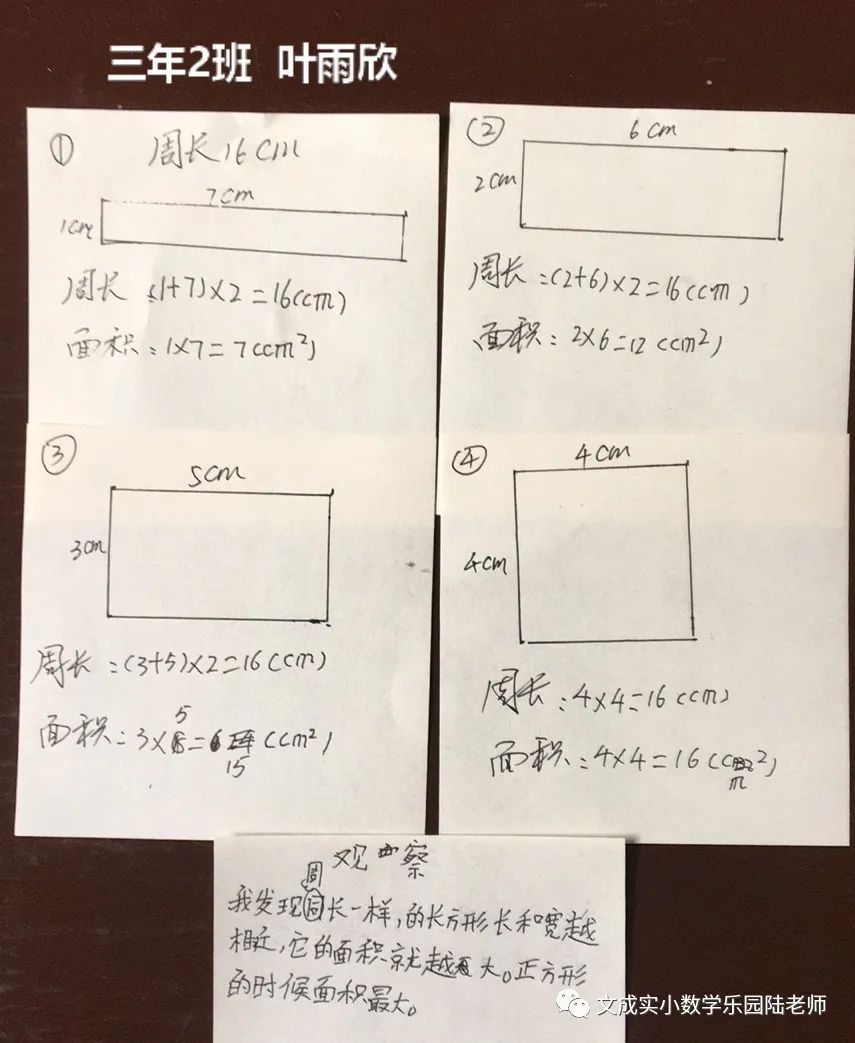 三年2班 叶雨欣
① 周长16cm
7cm
1cm
周长:(1+7)×2=16(cm)
面积:1×7=7(cm²)
② 6cm
2cm
周长:(2+6)×2=16(cm)
面积:2×6=12(cm²)
③
5cm
3cm
周长:(3+5)×2=16(cm)
5
面积:3× = (cm²)
15
④ 4cm
4cm
周长:4×4=16(cm)
面积:4×4=16(c ²)
m
观察
周
我发现 长一样,的长方形长和宽越
相近,它的面积就越 大。正方形
的时候面积最大。
文成实小数学乐园陆老师